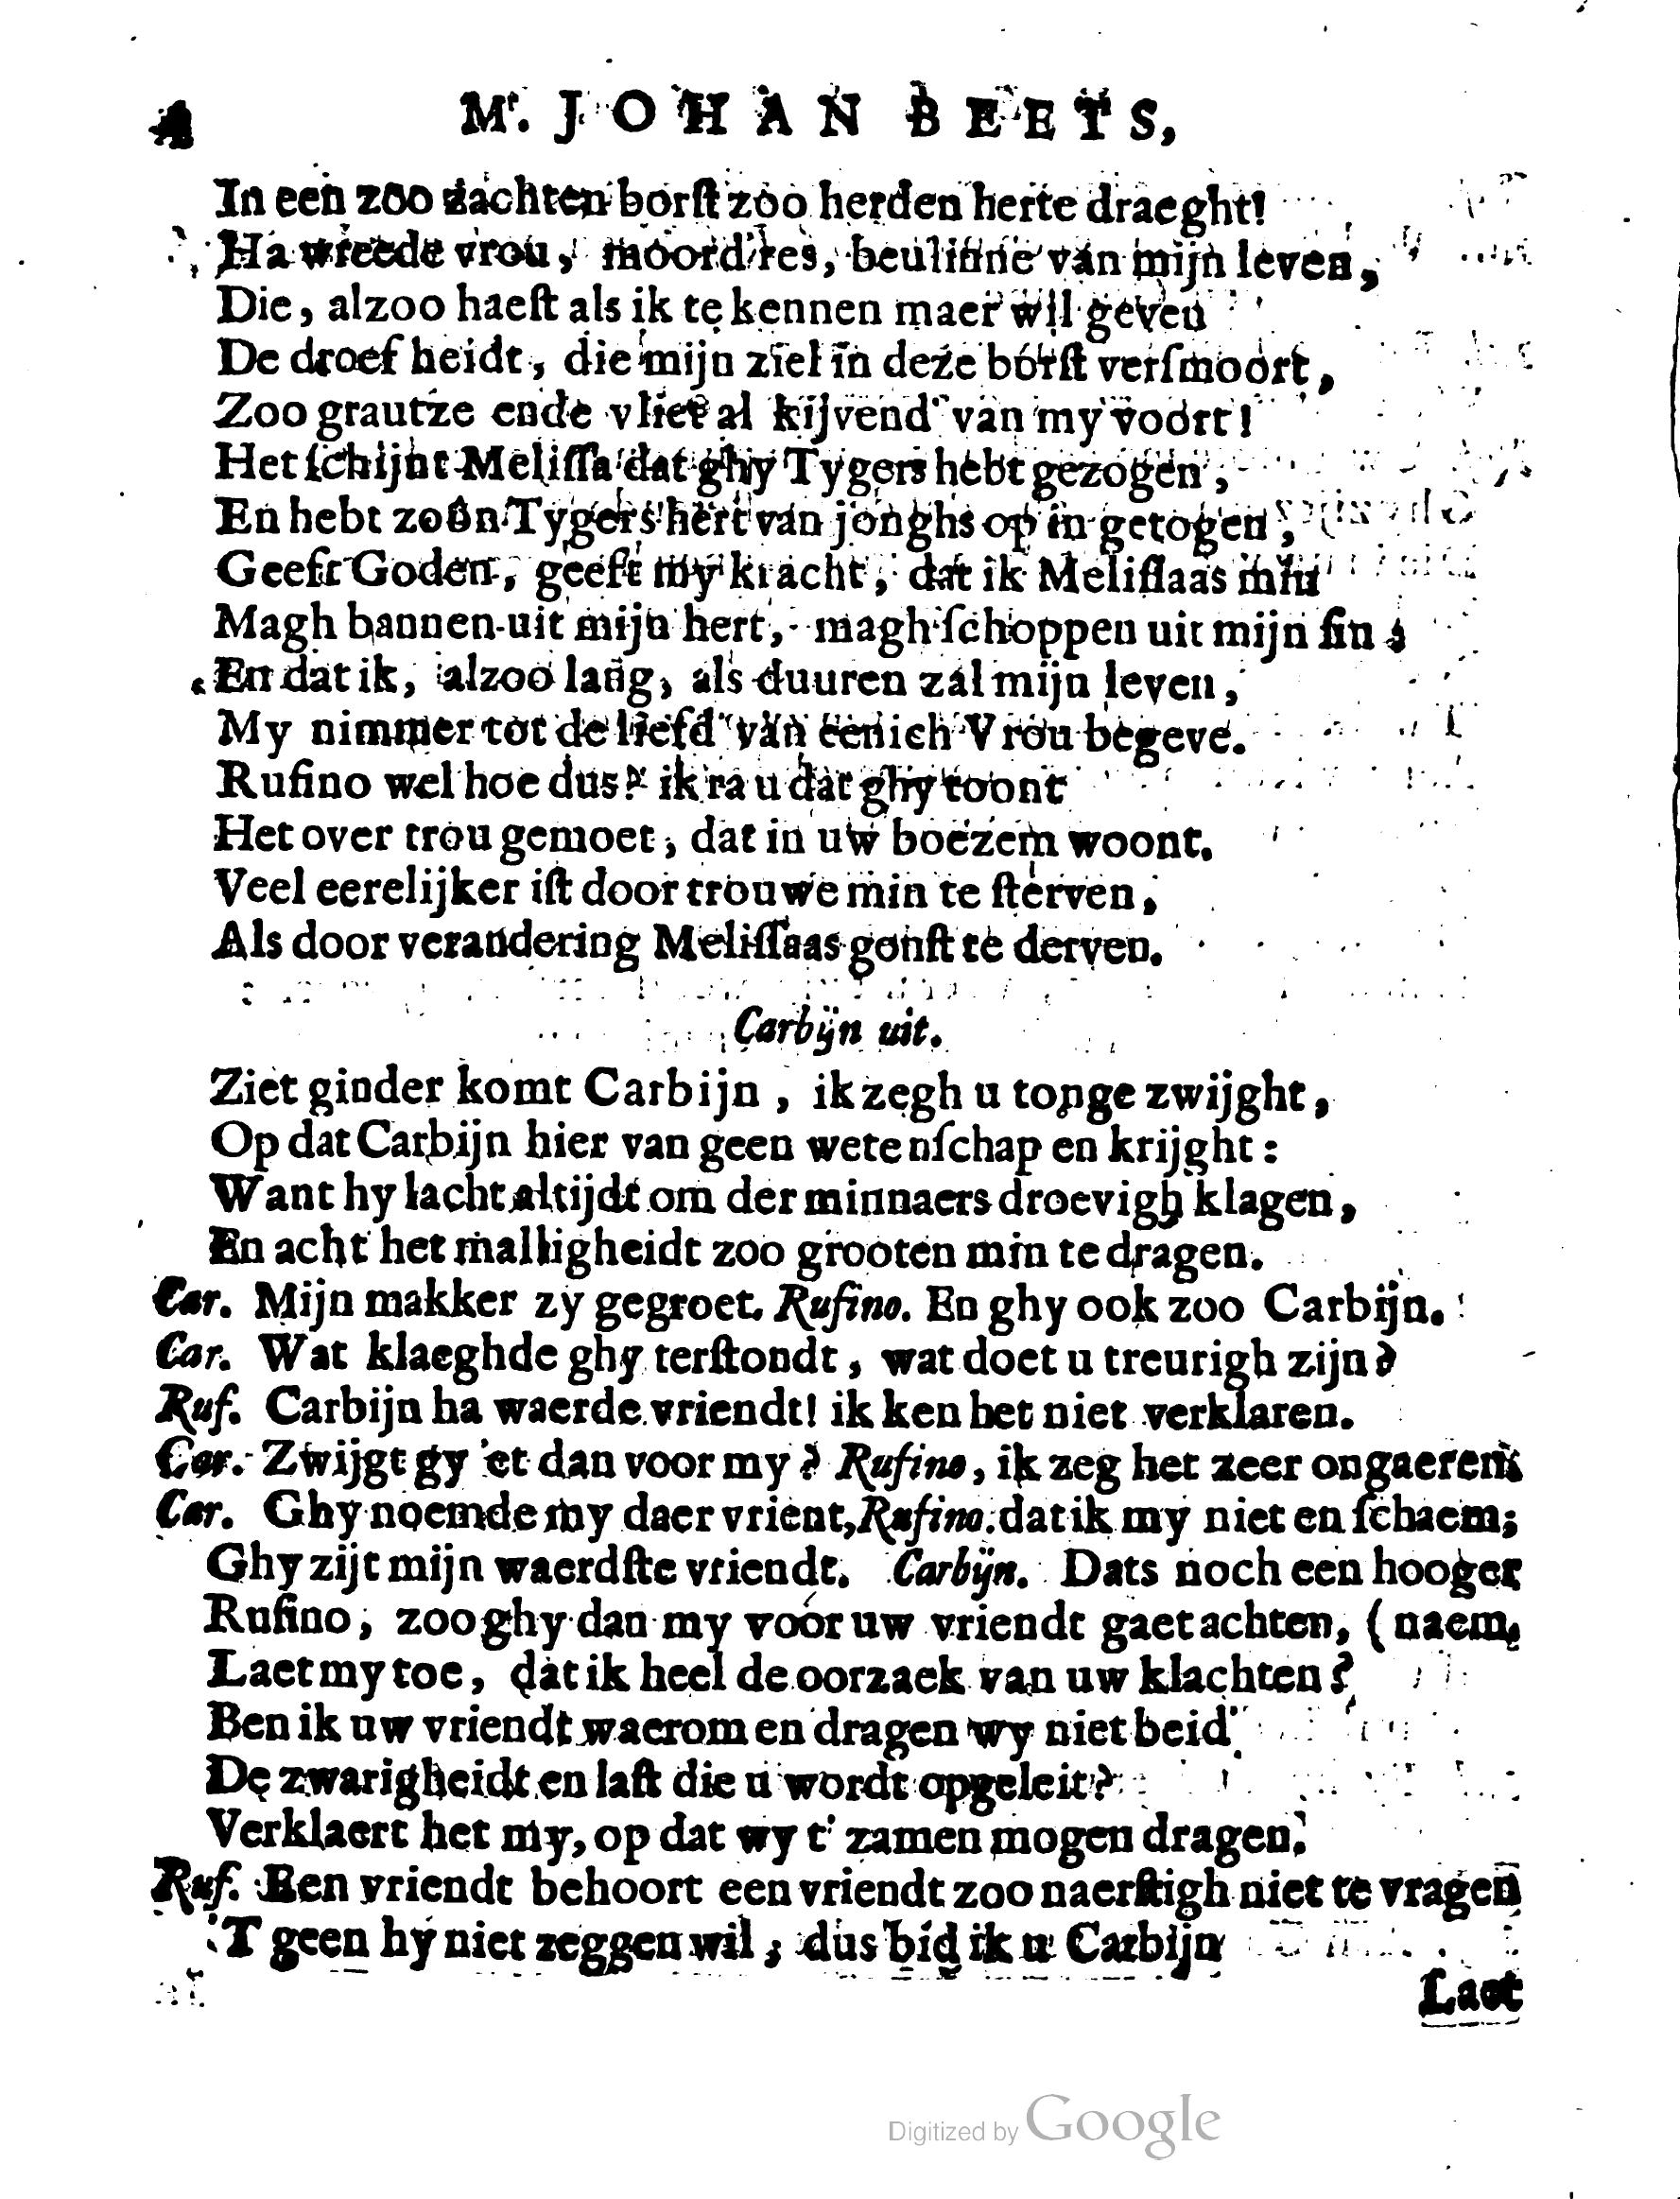 4 Mr. JOHAN BEETS,
In een zoo zachten borſt zoo herden herte draeght!
Ha wreede vrou, moord'res, beulinne van mijn leven,
Die, alzoo haeſt als ik te kennen maer wil geven
De droef heidt, die mijn ziel in deze borſt verſmoort,
Zoo grautze ende vliet al kijvend' van my voort!
Het ſchijnt Meliſſa dat ghy Tygers hebt gezogen,
En hebt zoôn Tygers hert van jonghs op in getogen,
Geeft Goden, geeft my kracht, dat ik Meliſſaas min
Magh bannen uit mijn hert, magh ſchoppen uit mijn ſin;
En dat ik, alzoo lang, als duuren zal mijn leven,
My nimmer tot de liefd' van eenich Vrou begeve.
Rufino wel hoe dus? ik ra u dat ghy toont
Het over trou gemoet, dat in uw boezem woont.
Veel eerelijker iſt door trouwe min te ſterven,
Als door verandering Meliſſaas gonſt te derven.
Carbijn uit.
Ziet ginder komt Carbijn, ik zegh u tonge zwijght,
Op dat Carbijn hier van geen wetenſchap en krijght:
Want hy lacht altijdt om der minnaers droevigh klagen,
En acht het malligheidt zoo grooten min te dragen.
Car. Mijn makker zy gegroet. Rufino. En ghy ook zoo Carbijn.
Car. Wat klaeghde ghy terſtondt, wat doet u treurigh zijn?
Ruf. Carbijn ha waerde vriendt! ik ken het niet verklaren.
Car. Zwijgt gy 'et dan voor my? Rufino, ik zeg het zeer ongaeren.
Car. Ghy noemde my daer vrient, Rufino. dat ik my niet en ſchaem;
Ghy zijt mijn waerdſte vriendt. Carbijn. Dats noch een hooger
Rufino, zoo ghy dan my voor uw vriendt gaet achten, (naem.
Laet my toe, dat ik heel de oorzaek van uw klachten?
Ben ik uw vriendt waerom en dragen wy niet beid'
De zwarigheidt en laſt die u wordt opgeleit?
Verklaert het my, op dat wy t' zamen mogen dragen.
Ruf. Een vriendt behoort een vriendt zoo naerſtigh niet te vragen
'T geen hy niet zeggen wil, dus bid ik u Carbijn
Laet
Digitized by Google